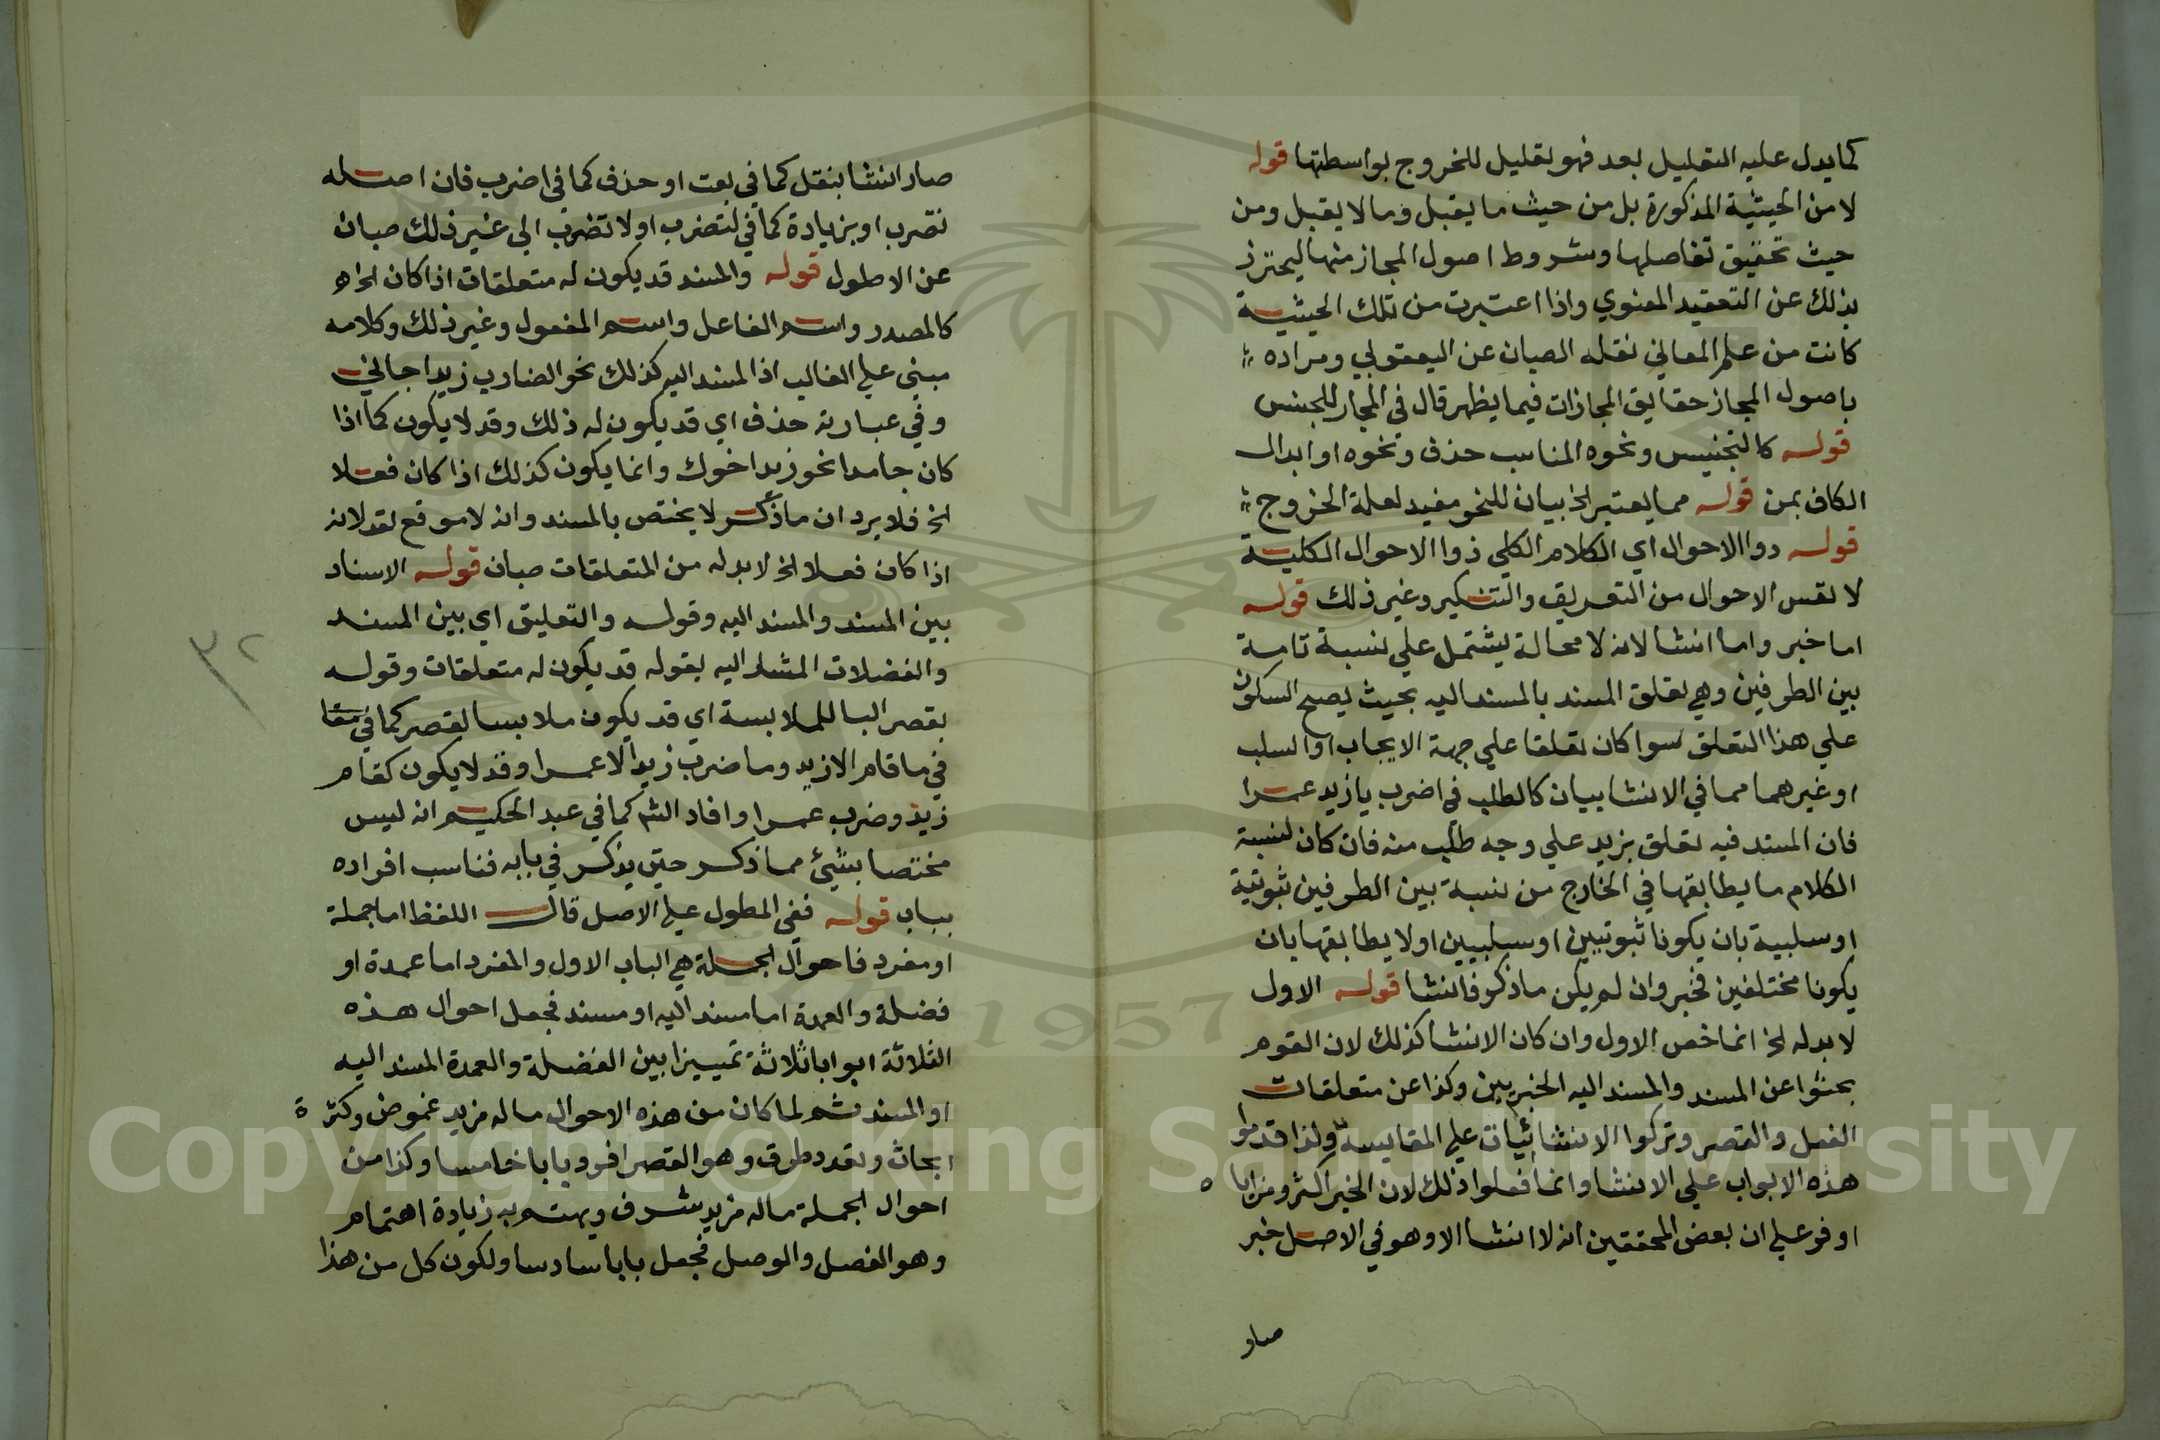 كما يدل عليه التعليل بعد فهو تعليل للخروج بواسطتها قوله
لا من الحيثية المذكورة بل من حيث ما يقبل وما لا يقبل ومن
حيث تحقيق تفاصلها وشروط اصول المجاز منها ليحترز
بذلك عن التعقيد المعنوي واذا اعتبرت من تلك الحيثية
كانت من علم المعاني نقله الصبان عن اليعقوبي ومراده
باصول المجاز حقايق المجازات فيما يظهر قال في المجاز للجنس
قوله كالتجنيس ونحوه المناسب حذف ونحوه او ابدال
الكاف بمن قوله مما يعتبر الخ بيان للنحو مفيد لعلة الخروج
قوله ذو الاحوال اي الكلام الكلي ذوا الاحوال الكلية
لا نفس الاحوال من التعريف والتنكير وغير ذلك قوله
اما خبر واما انشا لانه لا محالة يشتمل علي نسبة تامة
بين الطرفين وهي تعلق المسند بالمسند اليه بحيث يصح السكوت
علي هذا التعلق سوا كان تعلقا علي جهة الايجاب او السلب
او غيرهما مما في الانشا بيان كالطلب في اضرب يا زيد عمرا
فان المسند فيه تعلق بزيد علي وجه طلب منه فان كان لنسبة
الكلام ما يطابقها في الخارج من نسبة بين الطرفين ثبوتية
او سلبية بان يكونا ثبوتيين او سلبيين او لا يطابقها بان
يكونا مختلفين فخبر وان لم يكن ما ذكر فانشا قوله الاول
لا بد له الخ انما خص الاول وان كان الانشا كذلك لان القوم
بحثوا عن المسند والمسند اليه الخبريين وكذا عن متعلقات
الفعل والقصر وتركوا الانشائيات علي المقايسة ولذا قدموا
هذه الابواب علي الانشا وانما فعلوا ذلك لان الخبر اكثر ومزاياه
اوفر علي ان بعض المحققين انه لا انشا الا وهو في الاصل خبر
صار
صار انشا بنقل كما في بعت او حذف كما في اضرب فان اصله
تضرب او بزيادة كما في لتضرب او لا تضرب الي غير ذلك صبان
عن الاطول قوله والمسند قد يكون له متعلقات اذا كان الخ
كالمصدر واسم الفاعل واسم المفعول وغير ذلك وكلامه
مبني علي الغالب اذ المسند اليه كذلك نحو الضارب زيدا جاني
وفي عبارته حذف اي قد يكون له ذلك وقد لا يكون كما اذا
كان جامدا نحو زيد اخوك وانما يكون كذلك اذا كان فعلا
الخ فلا يرد ان ما ذكر لا يختص بالمسند وانه لا موقع لقد لانه
اذا كان فعلا الخ لا بد له من المتعلقات صبان قوله الاسناد
بين المسند والمسند اليه وقوله والتعليق اي بين المسند
والفضلات المشار اليه بقوله قد يكون له متعلقات وقوله
بقصر البا للملابسة اي قد يكون ملابسا لقصر كما في
في ما قام الا زيد وما ضرب زيد الا عمرا وقد لا يكون كقام
زيد وضرب عمرا وافاد الشم كما في عبد الحكيم انه ليس
مختصا بشيئ مما ذكر حتي يذكر في بابه فناسب افراده
بباب قوله ففي المطول علي الاصل قال اللفظ اما جملة
او مفرد فاحوال الجملة هي الباب الاول والمفرد اما عمدة او
فضلة والعمدة اما مسند اليه او مسند فجعل احوال هذه
الثلاثة ابوابا ثلاثة تمييزا بين الفضلة والعمدة المسند اليه
او المسند ثم لما كان من هذه الاحوال ما له مزيد غموض وكثرة
ابحاث وتعدد طرق وهو القصر افرد بابا خامسا وكذا من
احوال الجملة ما له مزيد شرف ويهتم به زيادة اهتمام
وهو الفصل والوصل فجعل بابا سادسا ولكون كل من هذا
٣٢
Copyright © King Saud University
1957